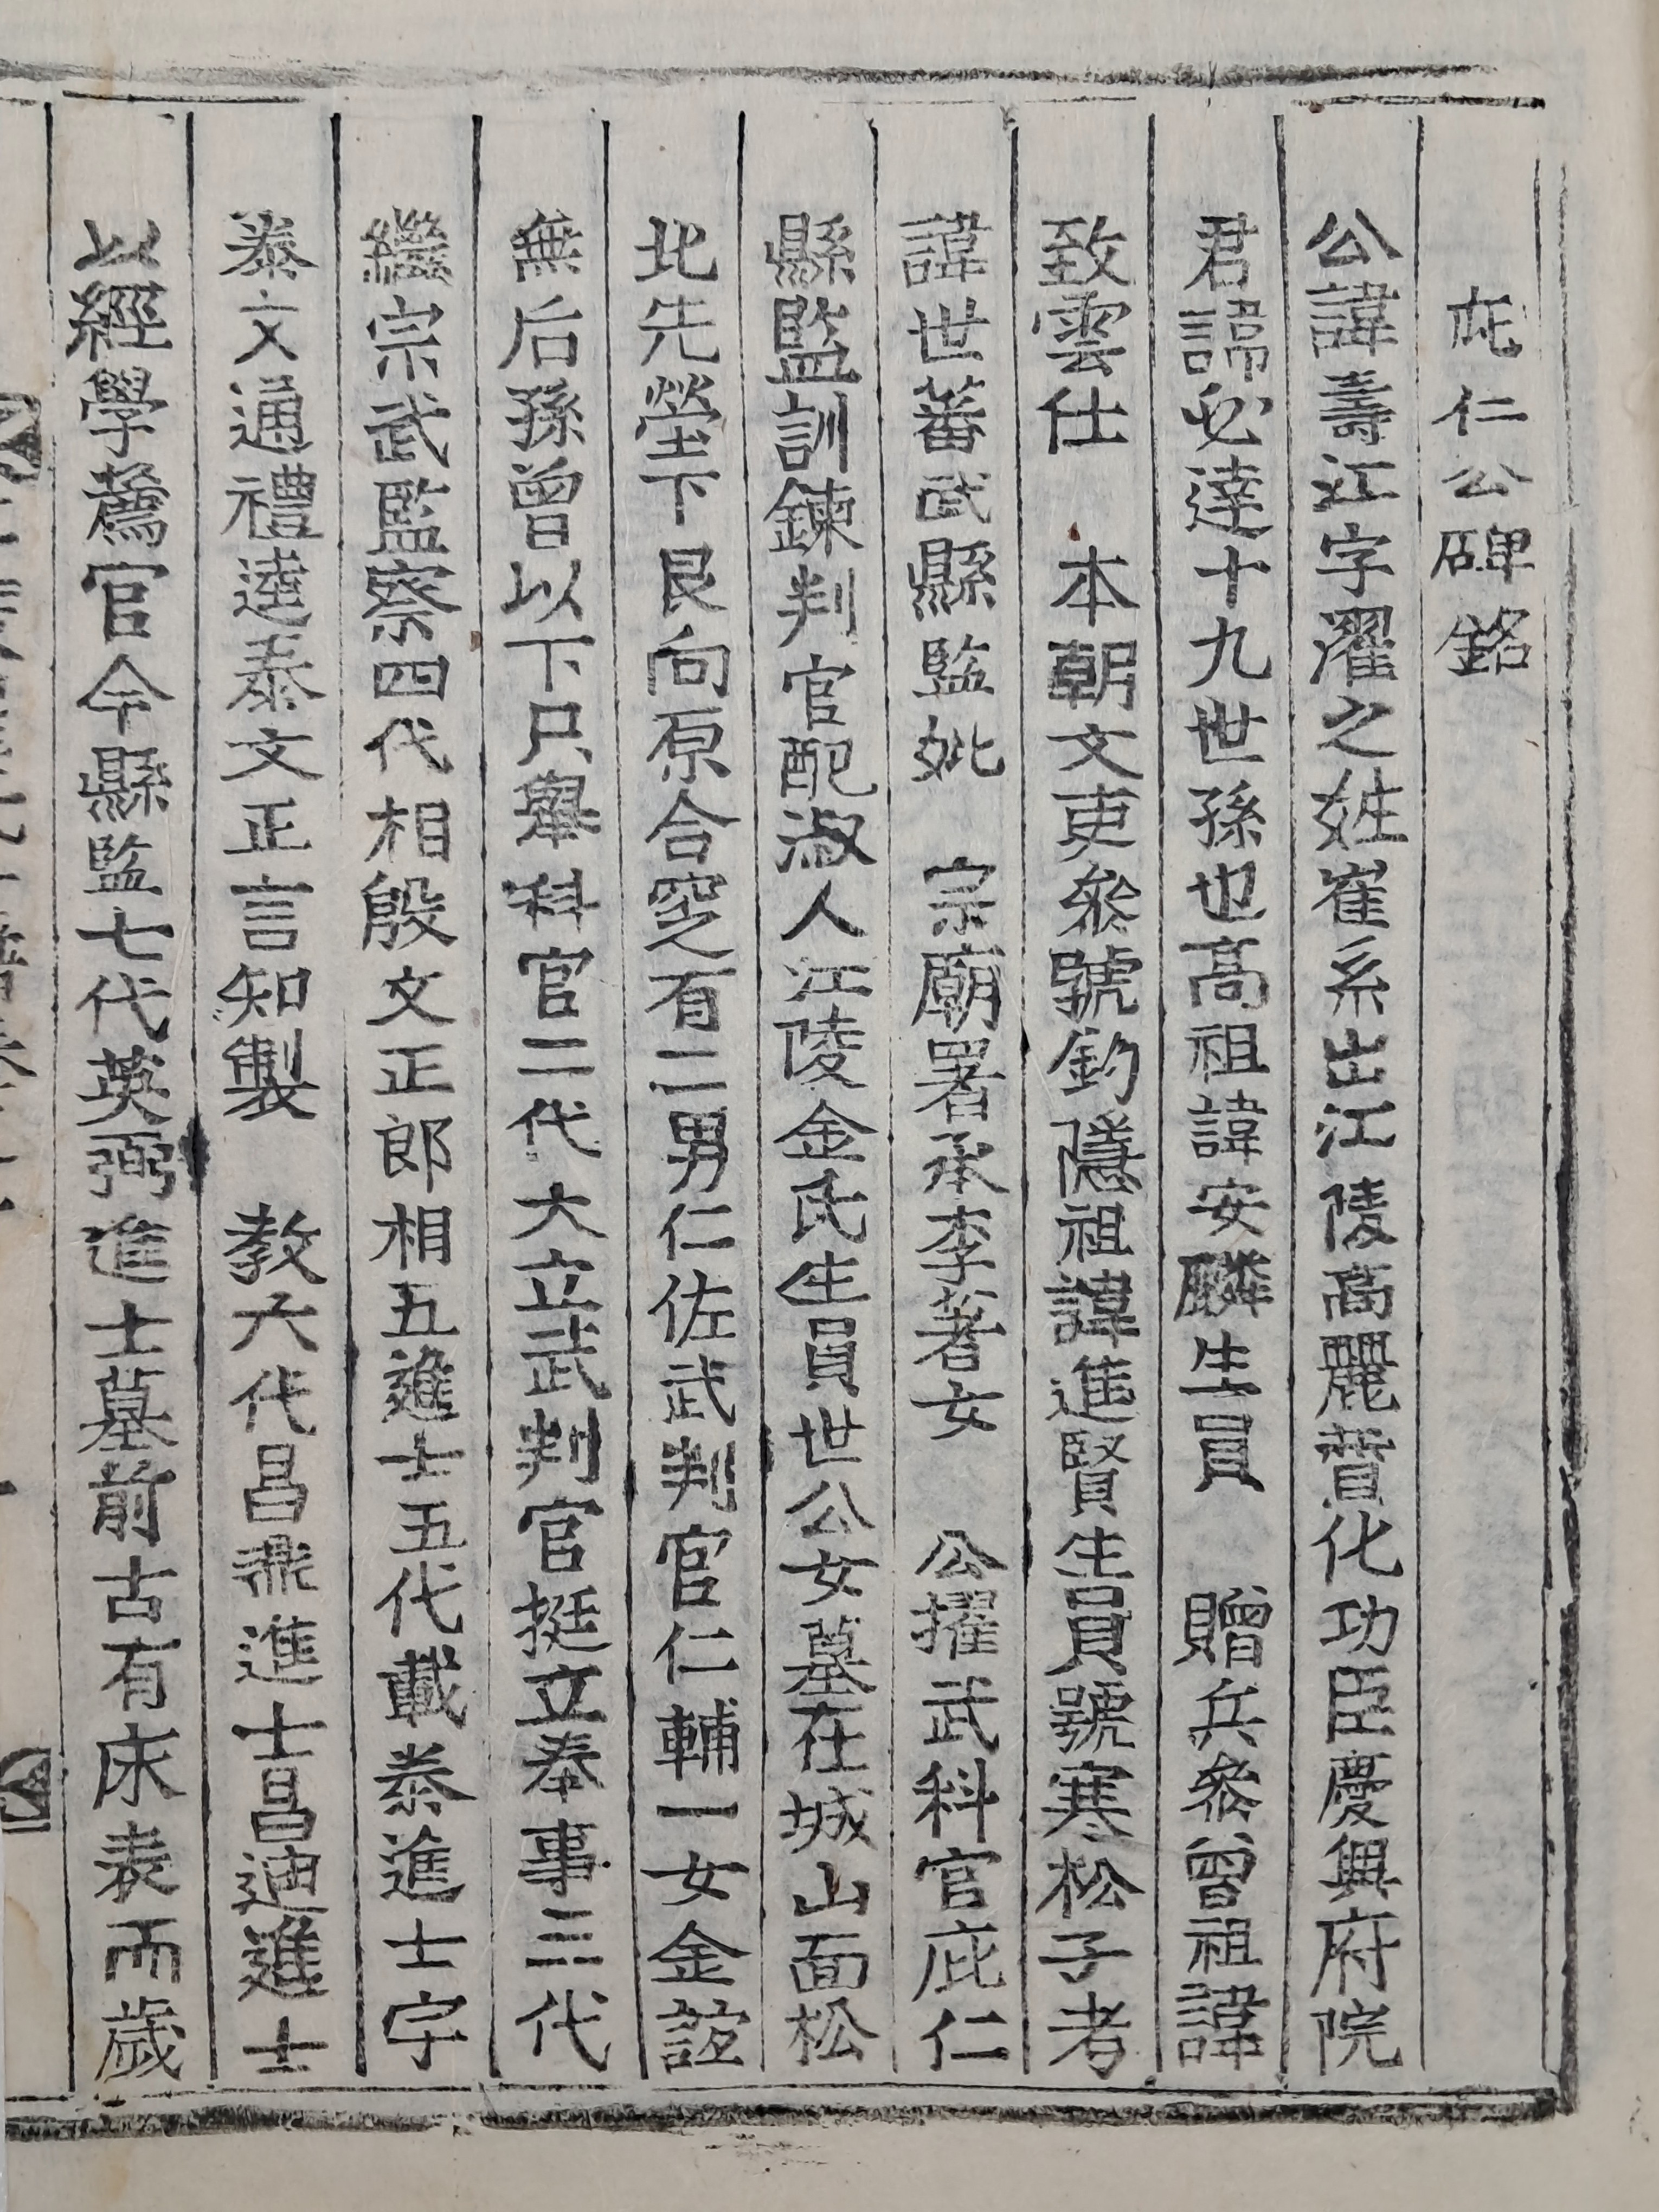 庇仁公碑銘
公諱壽江字濯之姓崔系出江陵高麗贊化功臣慶興府院
君諱必達十九世孫也高祖諱安麟生員 贈兵叅曾祖諱
致雲仕 本朝文吏叅號釣隱祖諱進賢生員號寒松子考
諱世蕃武縣監妣 宗廟署丞李著女 公擢武科官庇仁
縣監訓鍊判官配淑人江陵金氏生員世公女墓在城山面松
北先塋下艮向原合窆有二男仁佐武判官仁輔一女金誼
無后孫曾以下只擧科官二代大立武判官挺立奉事三代
繼宗武監察四代相殷文正郎相五進士五代載泰進士宇
泰文通禮逵泰文正言知製 教六代昌鼎進士昌迪進士
以經學薦官今縣監七代英弼進士墓前古有床表而歲